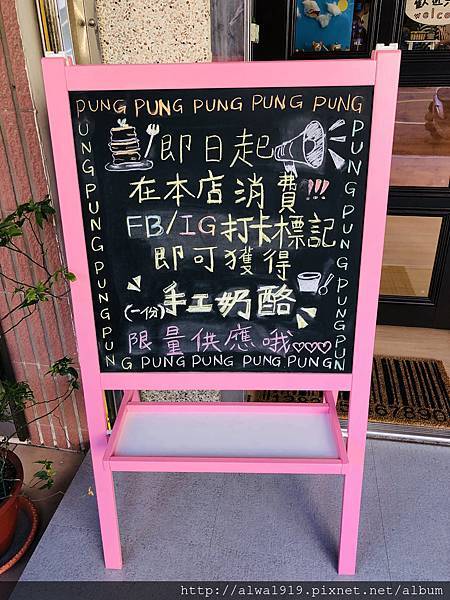 歡迎光臨
welcome
PUNG PUNG PUNG PUNG PUNG
PUNG PUNG PUNG PUNG PUNG
即日起
在本店消費!!!
FB/IG打卡標記
即可獲得
(一份)手工奶酪
限量供應哦♡♡♡
PUNG PUNG PUNG PUNG PUN
PUNG PUNG PUNG PUNG
http://alwa1919.pixnet.net/album